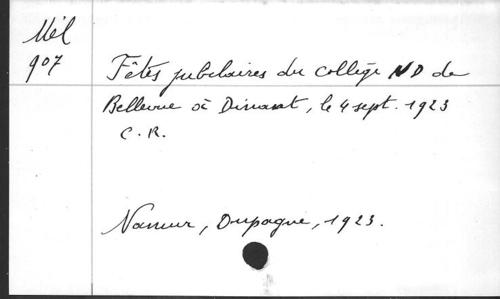 Mél
907
Fêtes jubilaires du collège ND de
Bellevue à Dinant, le 4 sept. 1923
C.R.
Namur, Dupagne, 1923.